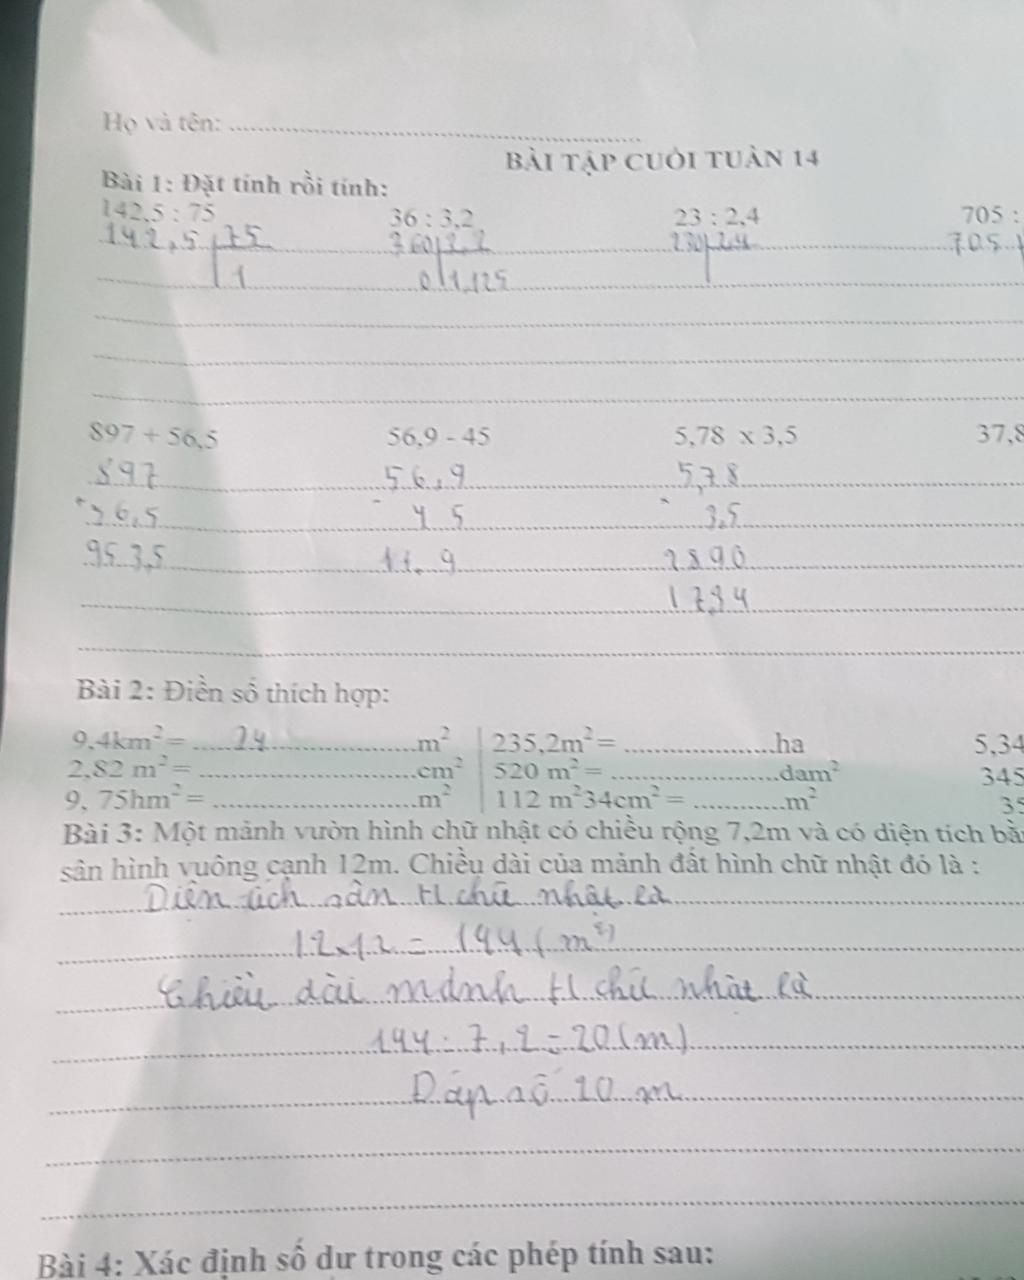 Họ và tên: ........................
BÀI TẬP CUỐI TUẦN 14
Bài 1: Đặt tính rồi tính:
142,5 : 75 36 : 3,2 23 : 2,4 705 :
142,5 75 360 3,2 230 2,4 705
1 0 1,125
897 + 56,5 56,9 - 45 5,78 x 3,5 37,8
897 56,9 5,78
+ 56,5 - 45 x 3,5
953,5 11,9 2890
1734
Bài 2: Điền số thích hợp:
9,4km²= ....94....m² 235,2m²= ............ha 5,34
2,82 m²= ............cm² 520 m²= ............dam² 345
9, 75hm²= ............m² 112 m²34cm²= ............m² 35
Bài 3: Một mảnh vườn hình chữ nhật có chiều rộng 7,2m và có diện tích bằn
sân hình vuông cạnh 12m. Chiều dài của mảnh đất hình chữ nhật đó là :
Diện tích sân H chữ nhật là
12x12 = 144 ( m²)
Chiều dài mảnh H chữ nhật là
144 : 7,2 = 20 (m)
Đáp số 20 m
Bài 4: Xác định số dư trong các phép tính sau: